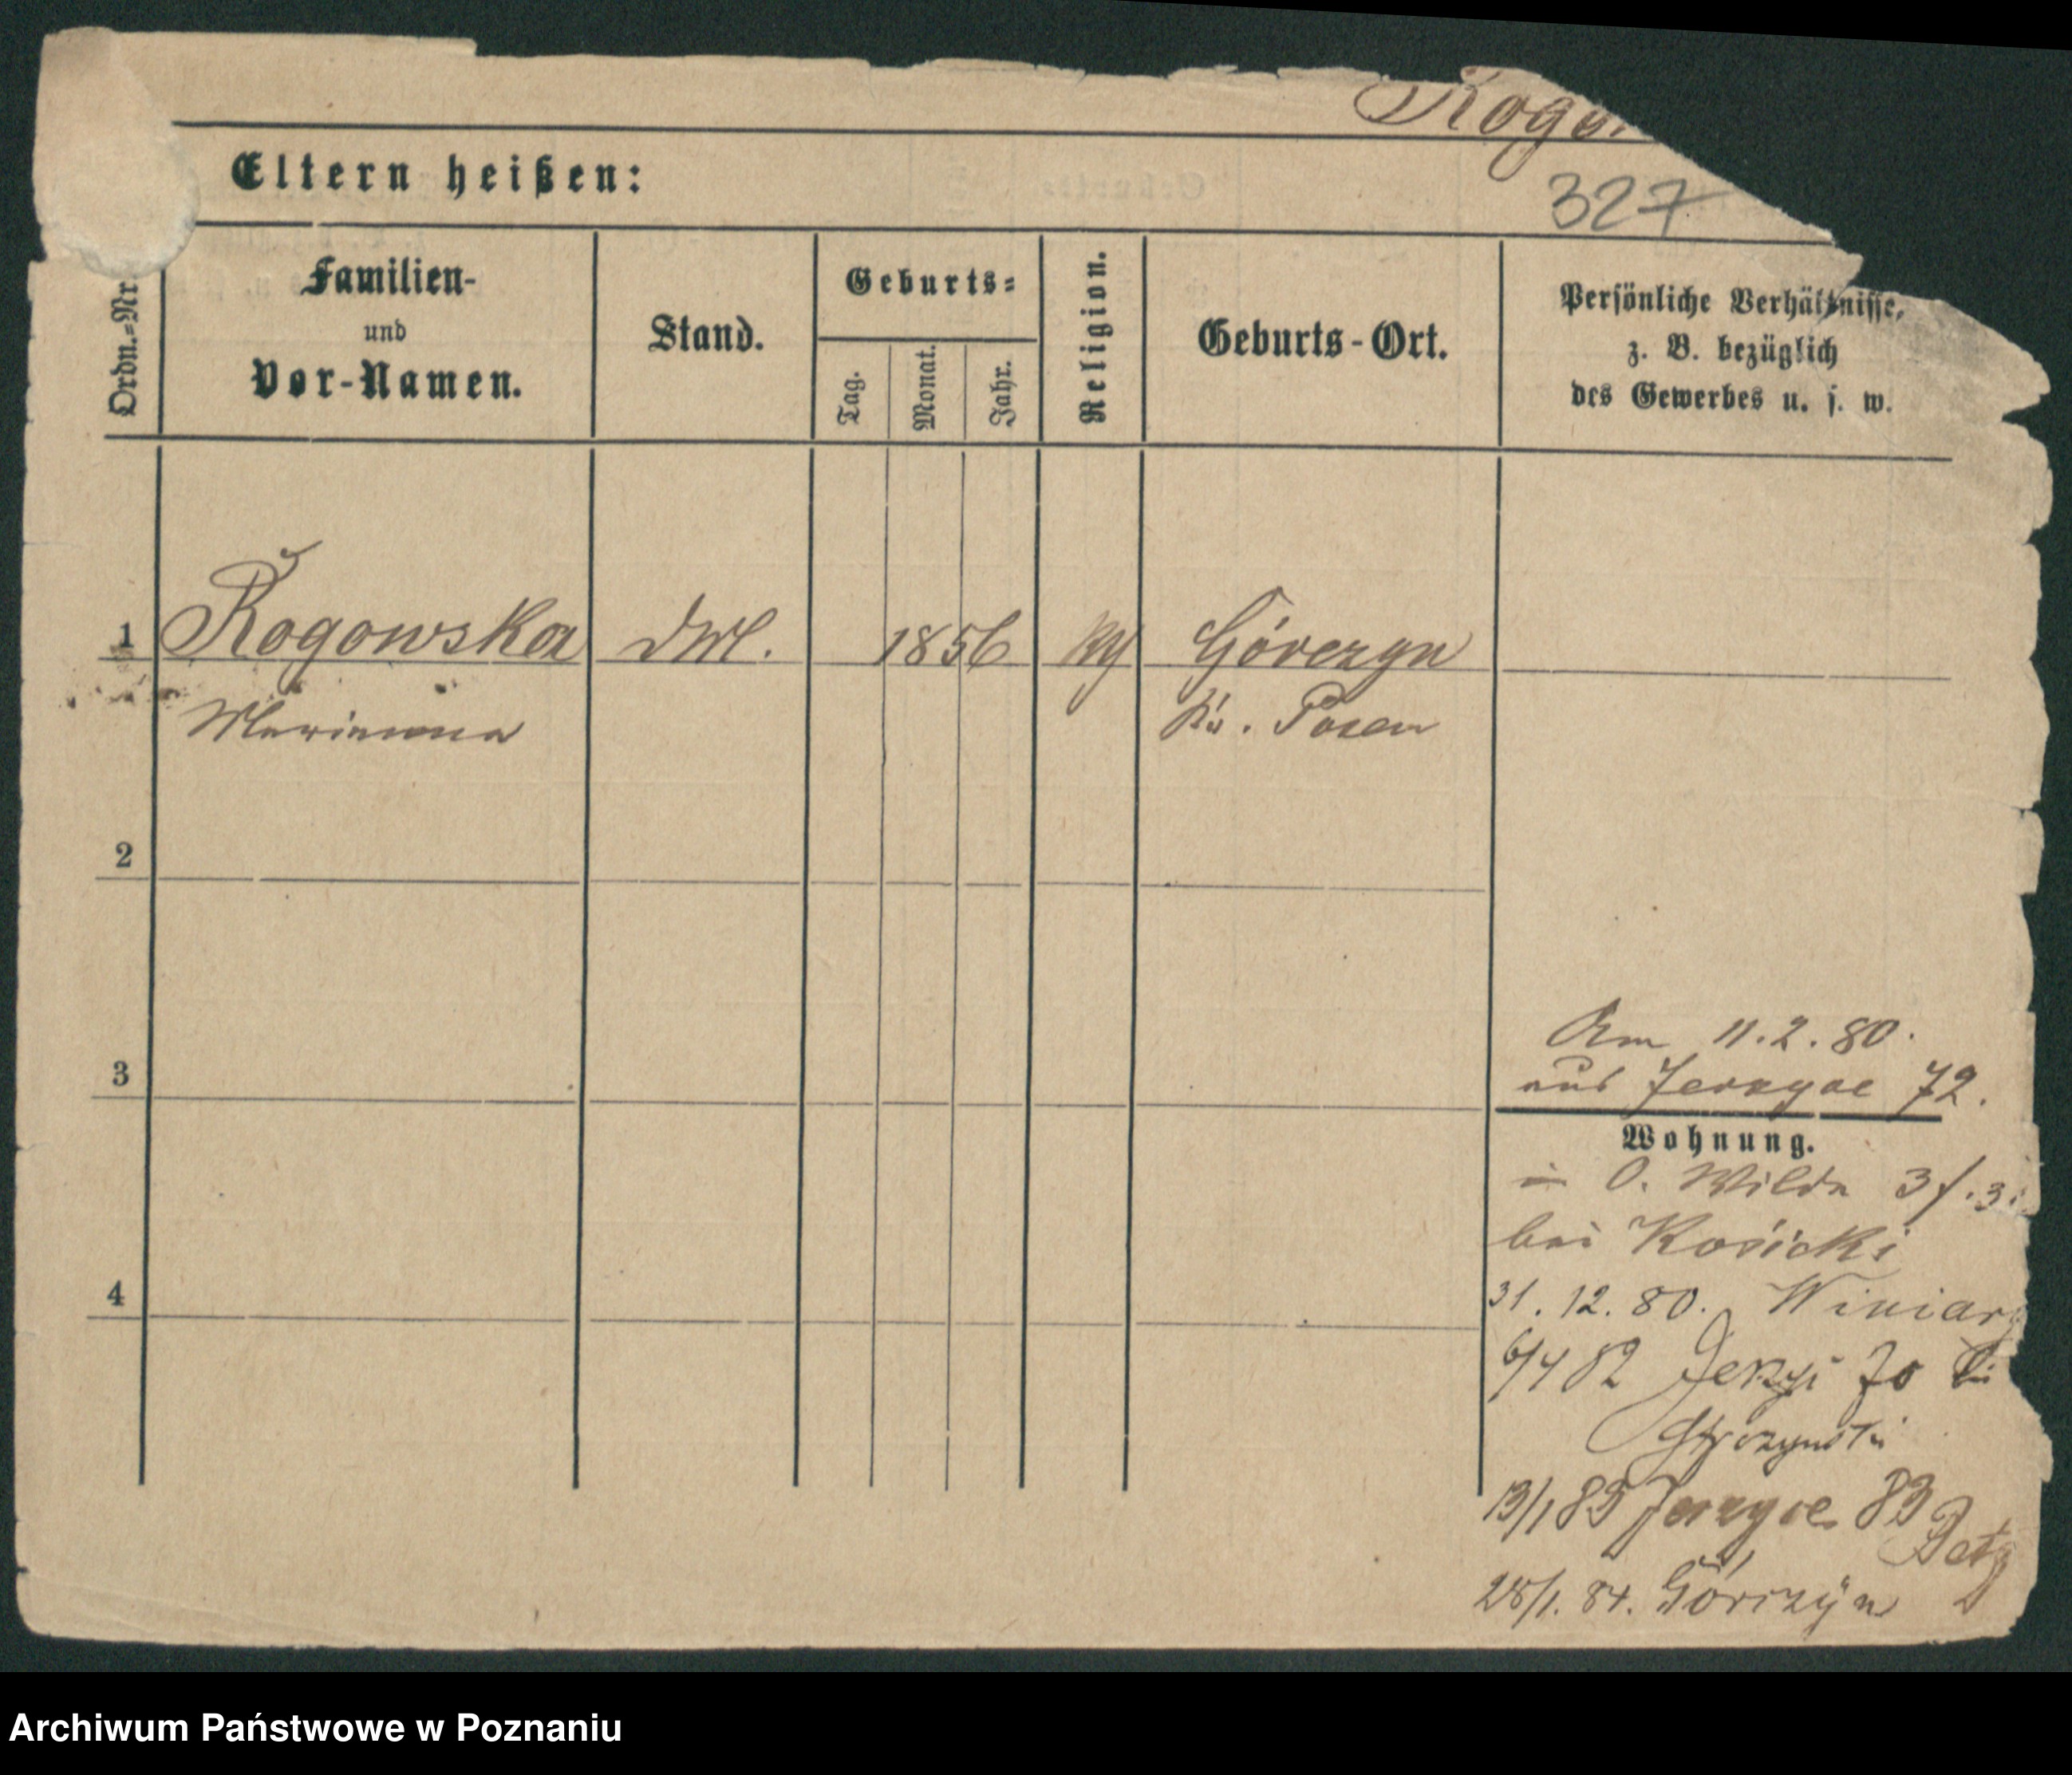 Rogo
327
Eltern heißen:
Ordn.=Nr.
Familien-
und
Vor-Namen.
Stand.
Geburts=
Tag.
Monat.
Jahr.
Religion.
Geburts-Ort.
Persönliche Verhältnisse,
z. B. bezüglich
des Gewerbes u. s. w.
1 Rogowska 1856 Górczyn
Marianna Kr. Posen
2
3
4
Am 11.2.80.
aus Jerzyce 72.
Wohnung.
in O. Wilda
bei Kosicki
31. 12. 80. Winiary
6/4 82
13/1 83 Jerzyce 83
28/1. 84. Górczÿn
Archiwum Państwowe w Poznaniu